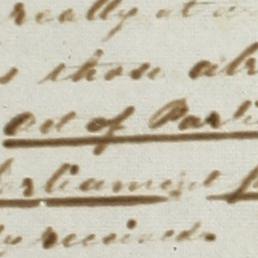 really at
those
Act of Parli
rliament
received.